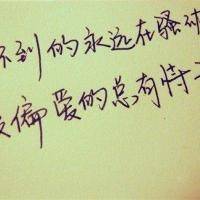 不到的永远在骚动
被偏爱的总有恃